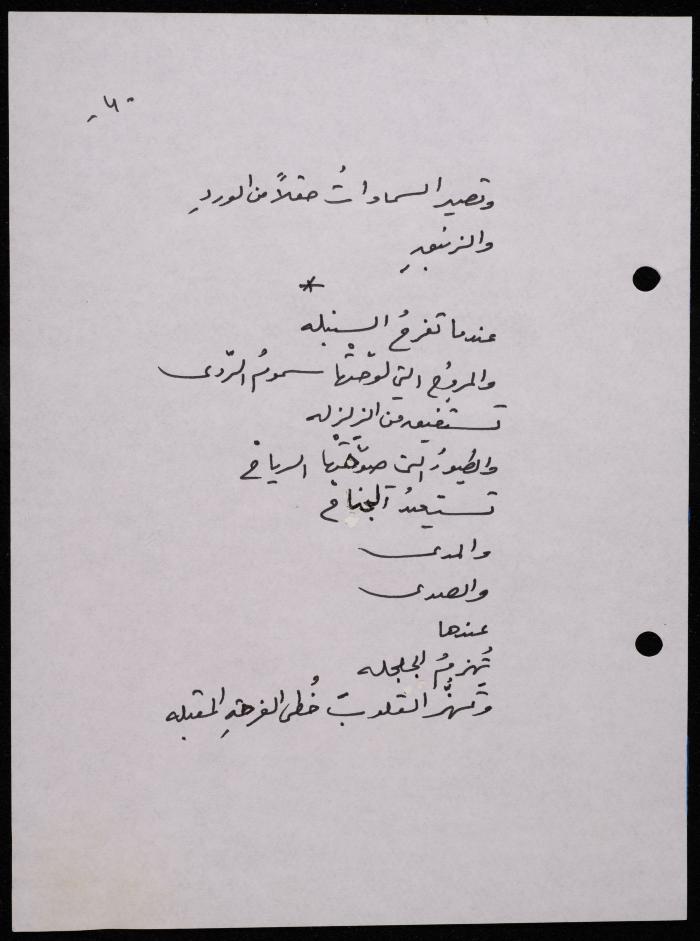 -٦-
وتصير السماواتُ حقلاً من الوردِ
والزنبقِ
*
عندما تفرحُ السنبله
والمروج التي لوّحتْها سمومُ الرّدى
تستفيق من الزلزله
والطيورُ التي صوّحتْها الرياح
تستعيدُ الجناح
والمدى
والصدى
عندها
تُهزمُ الجلجله
وتهزُّ القلوبَ خُطى الفرحةِ المقبله